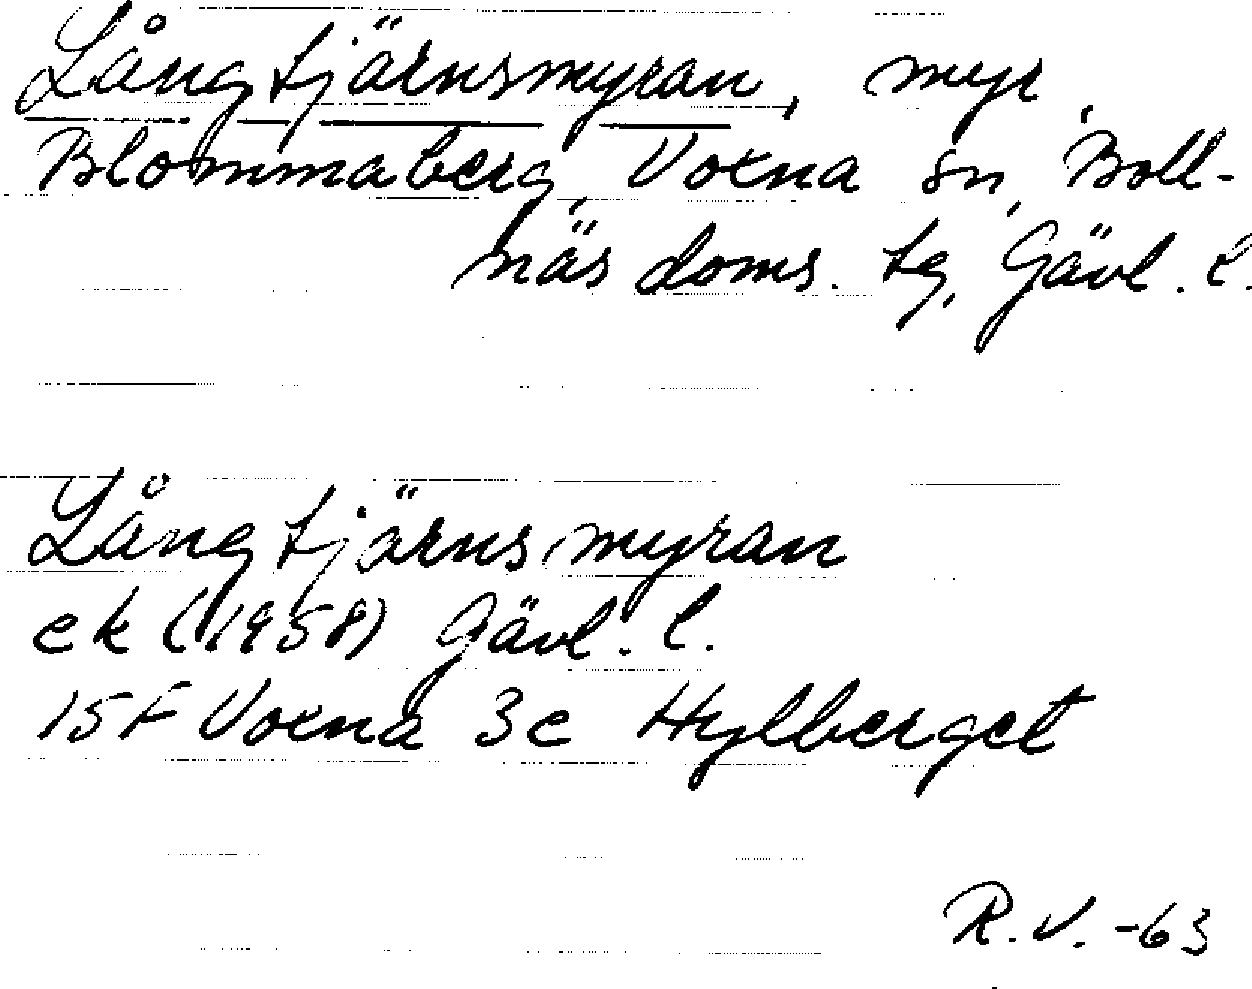 Långtjärnsmyran, myr,
Blommaberg, Voxna sn, Boll-
näs doms. tg, Gävl. l.
Långtjärnsmyran
ek (1958) Gävl. l.
15F Voxna 3e Hylberget
R.V. -63